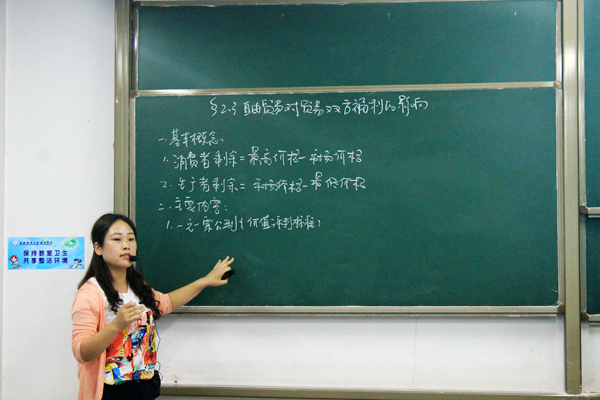 §2.3 自由贸易对贸易双方福利的影响
一、基本概念
1. 消费者剩余=最高价格-市场价格
2. 生产者剩余=市场价格-最低价格
二、主要内容:
1. 一元一票公理(价值评判标准)
保持教室卫生
共享整洁环境